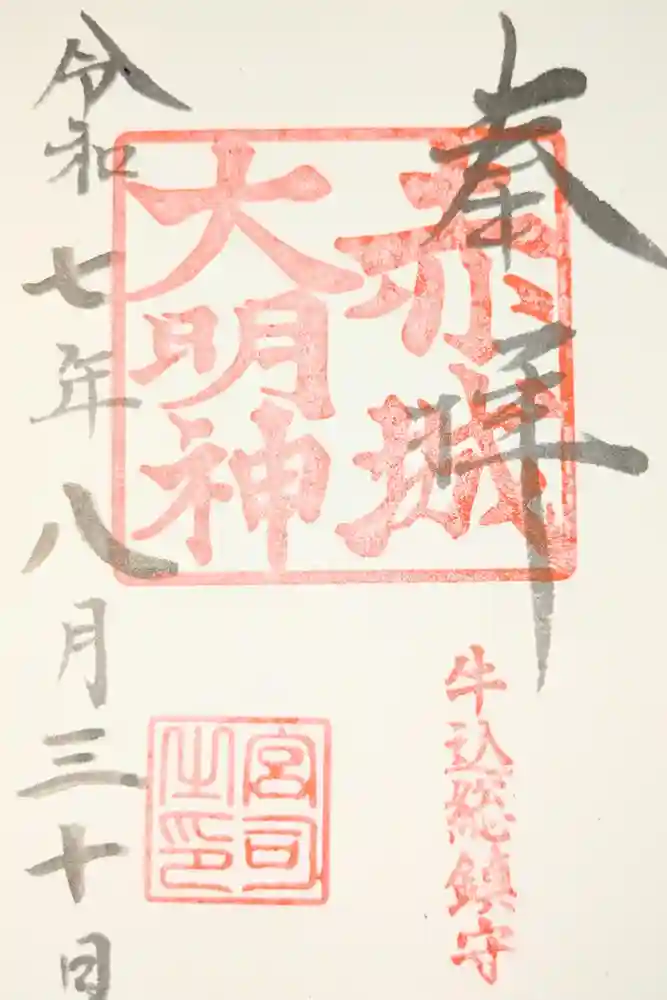 奉拝
赤城
大明神
牛込総鎮守
宮司
之印
令和七年八月三十日